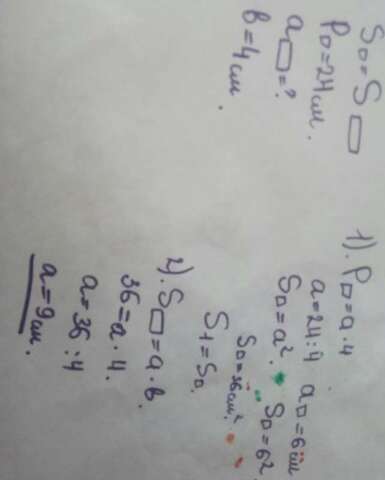 S□ = S▭
P□ = 24 см.
a▭ = ?
b = 4 см.
1). P□ = a · 4
a = 24 : 4 a□ = 6 см
S□ = a². S□ = 6²
S□ = 36 см².
S₁ = S□.
2). S▭ = a · b.
36 = a · 4.
a = 36 : 4
a = 9 см.